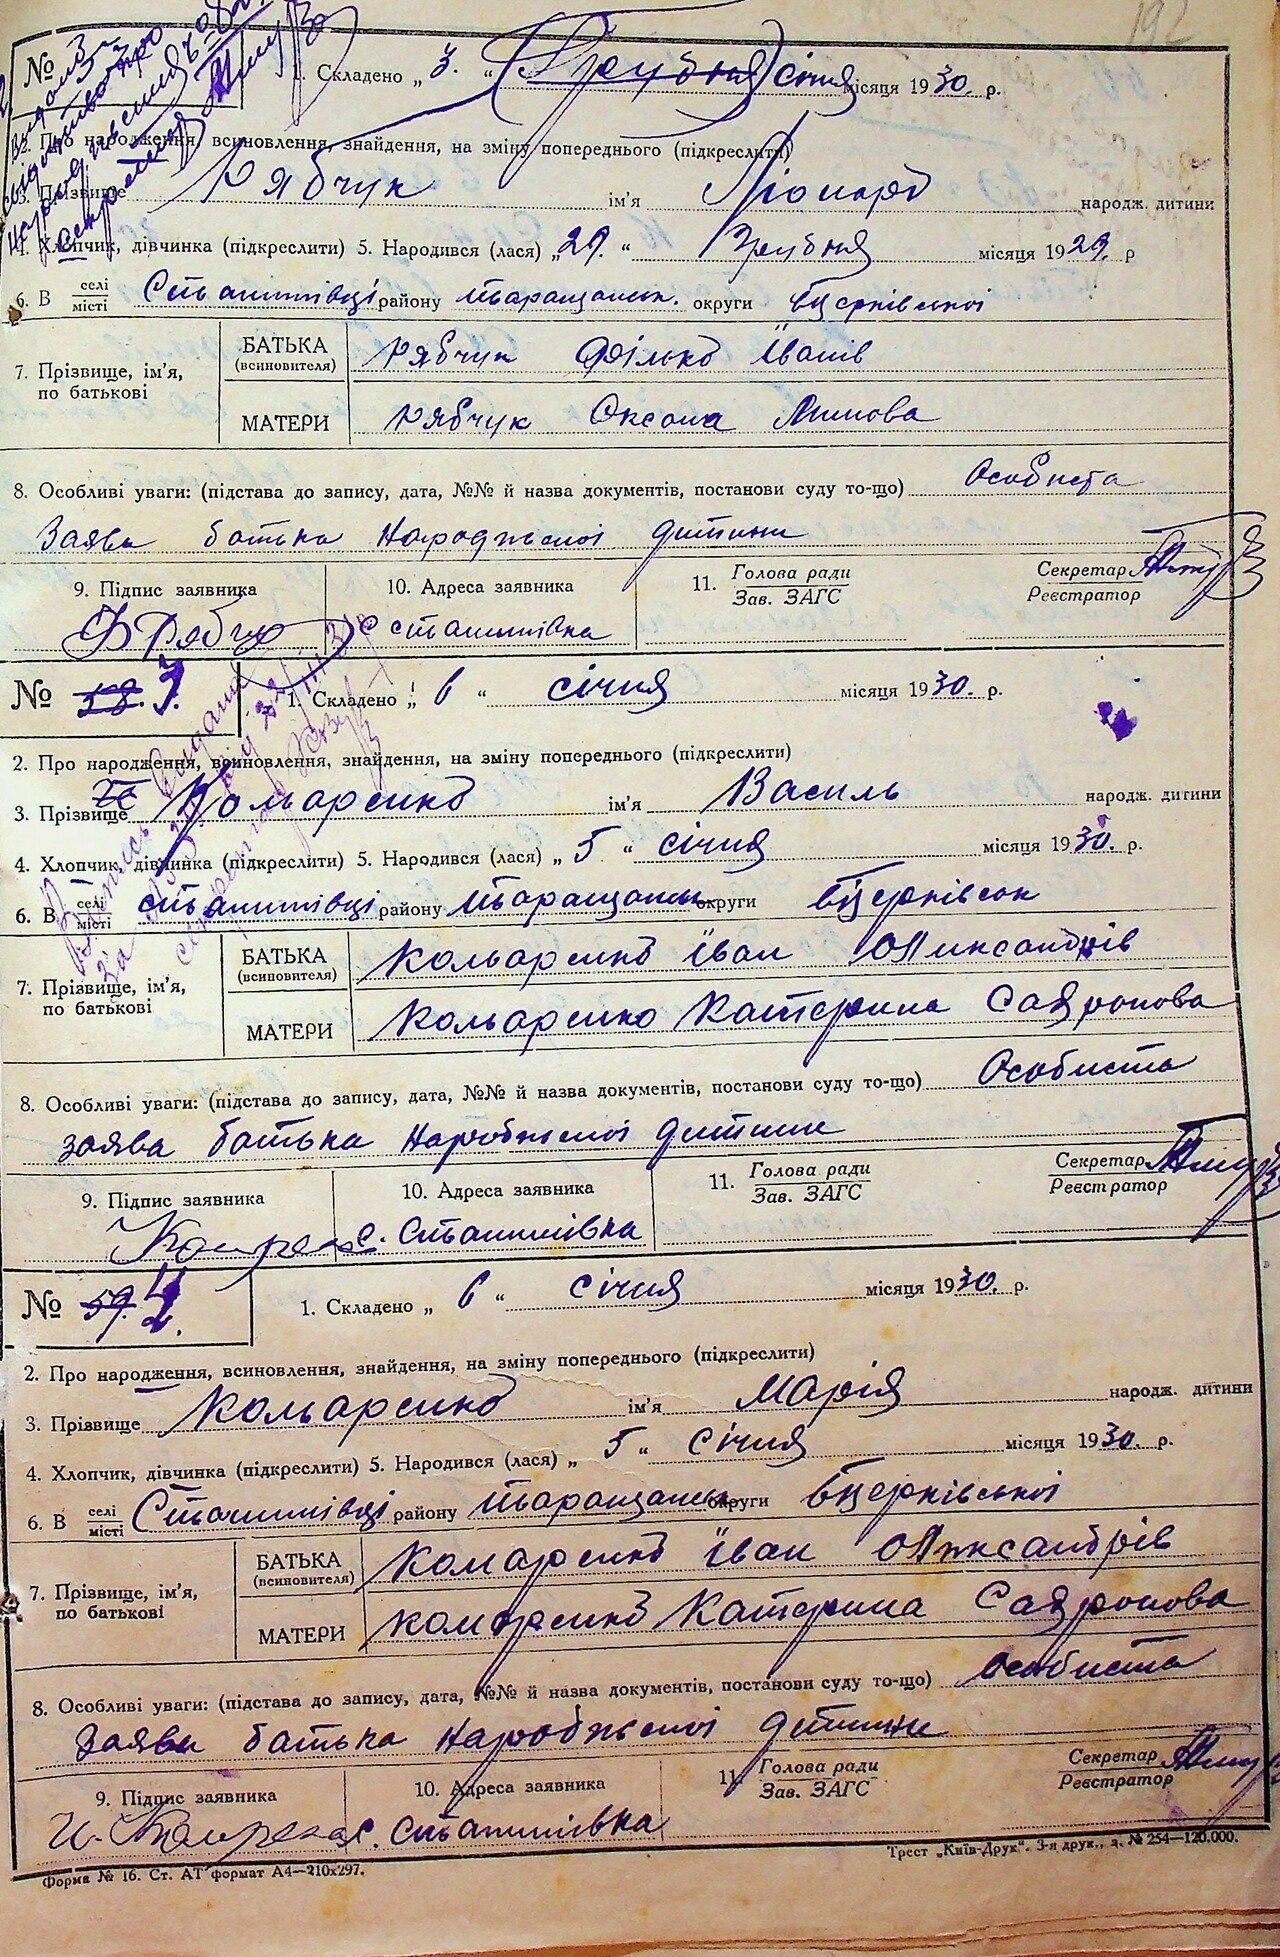 192
№ 3
1. Складено „ 3. “ (Грубня) січня місяця 1930. р.
2. Про народження, всиновлення, знайдення, на зміну попереднього (підкреслити)
3. Прізвище Рябчук ім'я Ліонард народж. дитини
4. Хлопчик, дівчинка (підкреслити) 5. Народився (лася) „ 29. “ Грубня місяця 1929. р
6. В селі місті Станишівці району Таращанськ. округи БЦерківської
7. Прізвище, ім'я, по батькові
БАТЬКА (всиновителя) Рябчук Філько Іванів
МАТЕРИ Рябчук Оксана
8. Особливі уваги: (підстава до запису, дата, №№ й назва документів, постанови суду то-що) Особиста
Заява батька народженої дитини
9. Підпис заявника 10. Адреса заявника 11. Голова ради Зав. ЗАГС Секретар Реєстратор
Ф Рябчук с Станишівка
№ 58. 3.
1. Складено „ 6 “ січня місяця 1930. р.
2. Про народження, всиновлення, знайдення, на зміну попереднього (підкреслити)
3. Прізвище Комаренко ім'я Василь народж. дитини
4. Хлопчик, дівчинка (підкреслити) 5. Народився (лася) „ 5 “ січня місяця 1930. р.
6. В селі місті Станишівці району Таращанськ округи БЦерківськ
7. Прізвище, ім'я, по батькові
БАТЬКА (всиновителя) Комаренко Іван Олександрів
МАТЕРИ Комаренко Катерина Сафронова
8. Особливі уваги: (підстава до запису, дата, №№ й назва документів, постанови суду то-що) Особиста
заява батька народженої дитини
9. Підпис заявника 10. Адреса заявника 11. Голова ради Зав. ЗАГС Секретар Реєстратор
с. Станишівка
№ 59. 4
1. Складено „ 6 “ січня місяця 1930. р.
2. Про народження, всиновлення, знайдення, на зміну попереднього (підкреслити)
3. Прізвище Комаренко ім'я Марія народж. дитини
4. Хлопчик, дівчинка (підкреслити) 5. Народився (лася) „ 5 “ січня місяця 1930. р.
6. В селі місті Станишівці району Таращанськ округи БЦерківської
7. Прізвище, ім'я, по батькові
БАТЬКА (всиновителя) Комаренко Іван Олександрів
МАТЕРИ Комаренко Катерина Сафронова
8. Особливі уваги: (підстава до запису, дата, №№ й назва документів, постанови суду то-що) особиста
Заява батька народженої дитини
9. Підпис заявника 10. Адреса заявника 11. Голова ради Зав. ЗАГС Секретар Реєстратор
с. Станишівка
Форма № 16. Ст. АТ формат А4—210х297. Трест „Київ-Друк“. 3-я друк., з. № 254—120.000.